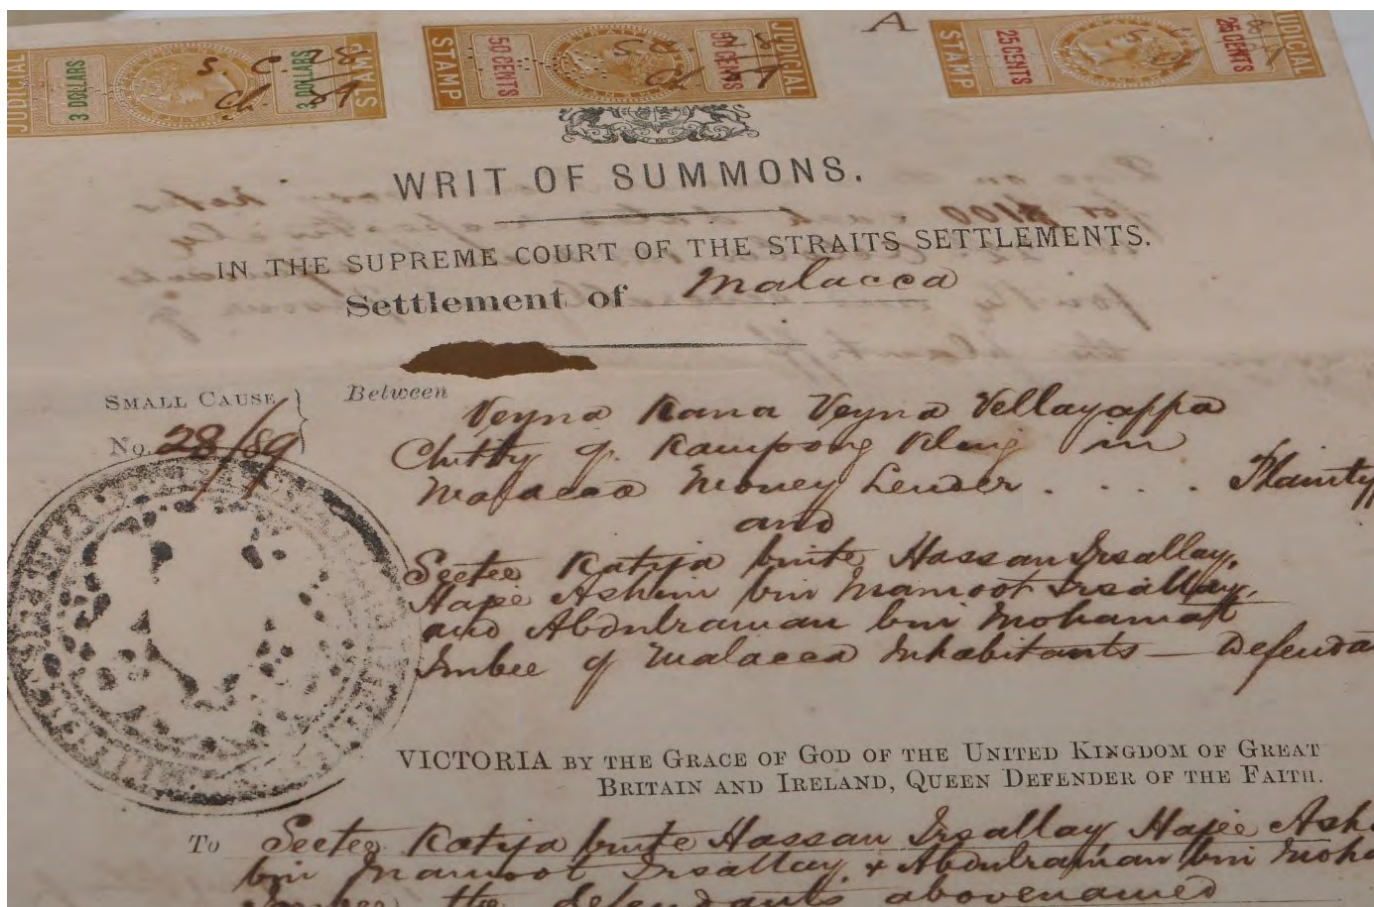 JUDICIAL 3 DOLLARS S. C. 28 3 DOLLARS STAMP
STAMP 50 CENTS S.C. 28 50 CENTS JUDICIAL
A
STAMP 25 CENTS 25 CENTS JUDICIAL
WRIT OF SUMMONS.
IN THE SUPREME COURT OF THE STRAITS SETTLEMENTS.
Settlement of Malacca
SMALL CAUSE
No. 28/89
Between Veyna Kana Veyna Vellayappa
Chitty of Kampong Kling in
Malacca Money Lender . . . . Plaintiff
and
Seetee Katija binte Hassan Irsallay,
Hajee Ashim bin Mamoot Irsallay,
and Abdulraman bin Mohamatt
Imbee of Malacca Inhabitants — Defenda
VICTORIA BY THE GRACE OF GOD OF THE UNITED KINGDOM OF GREAT
BRITAIN AND IRELAND, QUEEN DEFENDER OF THE FAITH.
To Seetee Katija binte Hassan Irsallay Hajee Ash
bin Mamoot Irsallay, & Abdulraman bin Moha
Imbee the defendants abovenamed